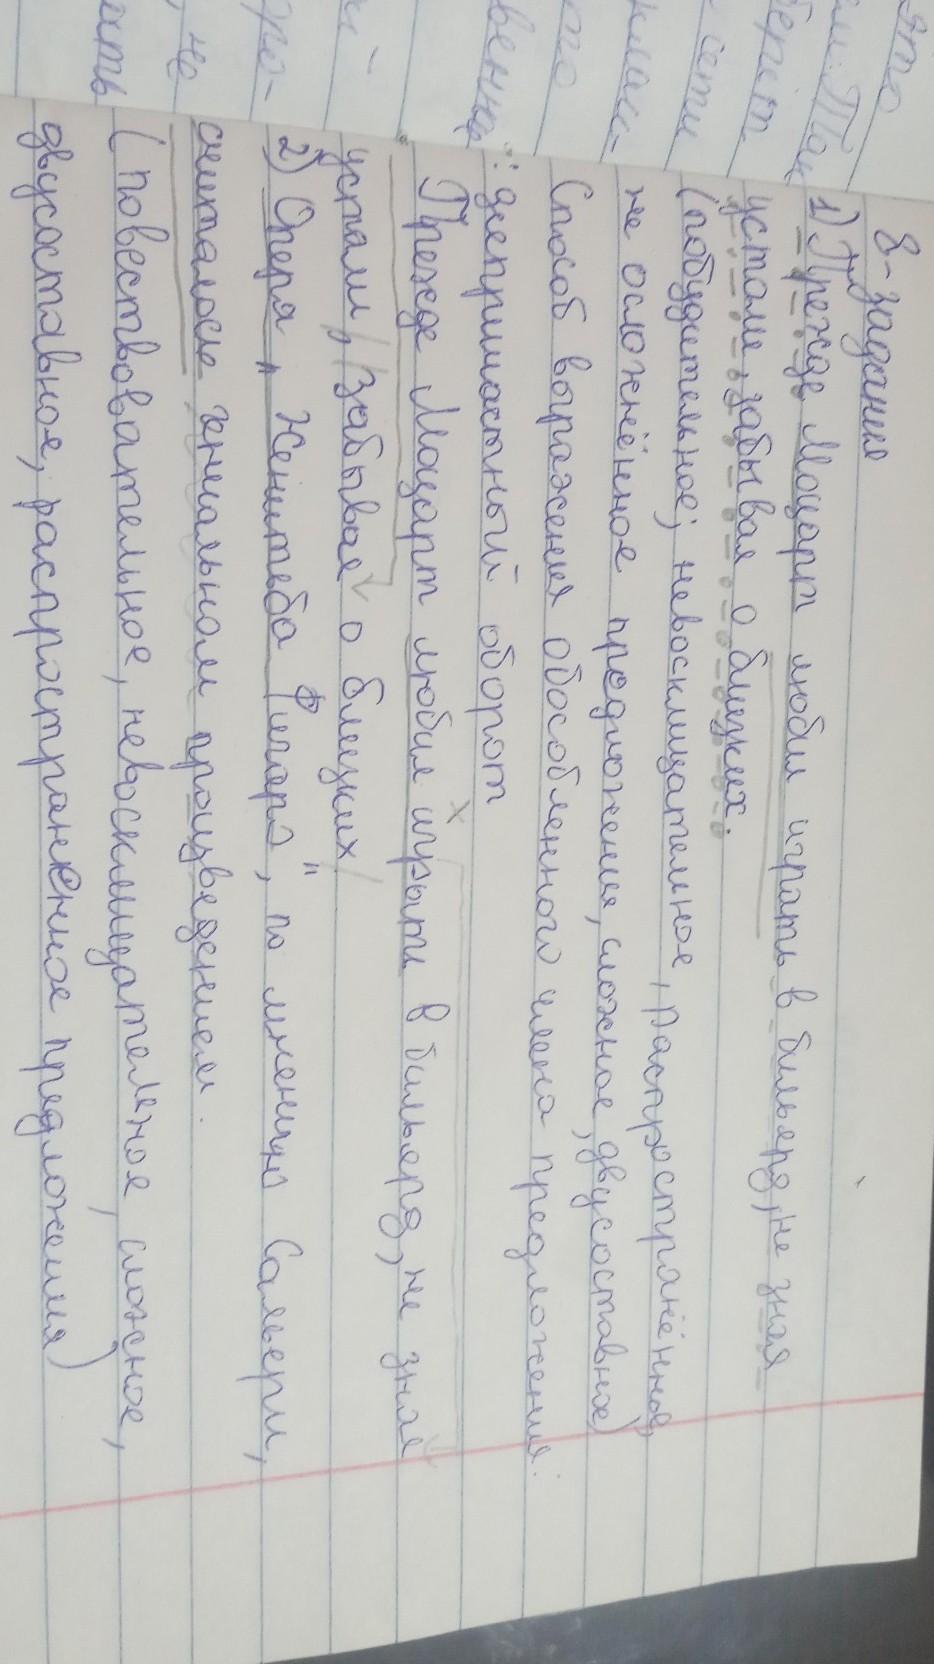 8-задание
1) Прежде Моцарт любил играть в бильярд, не зная
устали, забывая о близких.
(побудительное, невосклицательное, распространённое,
не осложнённое предложения, сложное, двусоставное)
Способ выражения обособленного члена предложения:
деепричастный оборот
Прежде Моцарт любил играть в бильярд, не зная
устали, забывая о близких
2) Опера "Женитьба Фигаро", по мнению Сальери,
считалось гениальном произведением.
(повествовательное, невосклицательное, сложное,
двусоставное, распространённое предложения)
ять
но
ого-
ого
венно
сети